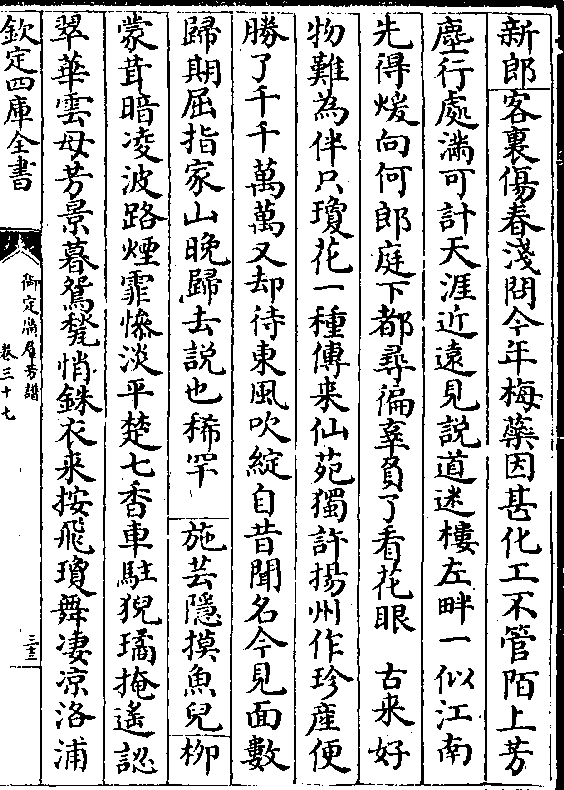 新郎客裏傷春淺問今年梅蘂因甚化工不管陌上芳
塵行處滿可計天涯近遠見說道迷樓左畔一似江南
先得煖向何郎庭下都尋徧辜負了看花眼 古来好
物難為伴只瓊花一種傳来仙苑獨許揚州作珍産便
勝了千千萬萬又却待東風吹綻自昔聞名今見面數
歸期屈指家山晚歸去說也稀罕 施芸隱摸魚兒柳
蒙茸暗凌波路煙霏慘淡平楚七香車駐猊璚掩遙認
翠華雲母芳景暮鴛甃悄銖衣来按飛瓊舞凄凉洛浦
欽定四庫全書
御定淵鑒羣芳譜
卷三十七
三十三